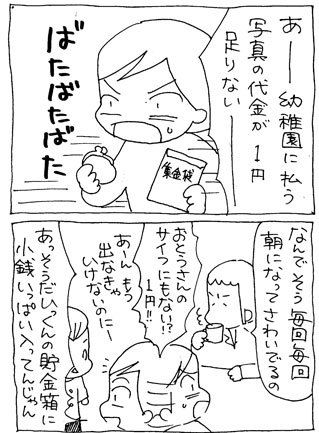 あー幼稚園に払う
写真の代金が1円
足りないー
ばたばたばた
集金袋
なんでそう毎回毎回
朝になってさわいでるの
おとうさんの
サイフにもない!?
1円!!
あーんもう
出なきゃ
いけないのにー
あっそうだひーくんの貯金箱に
小銭いっぱい入ってんじゃん